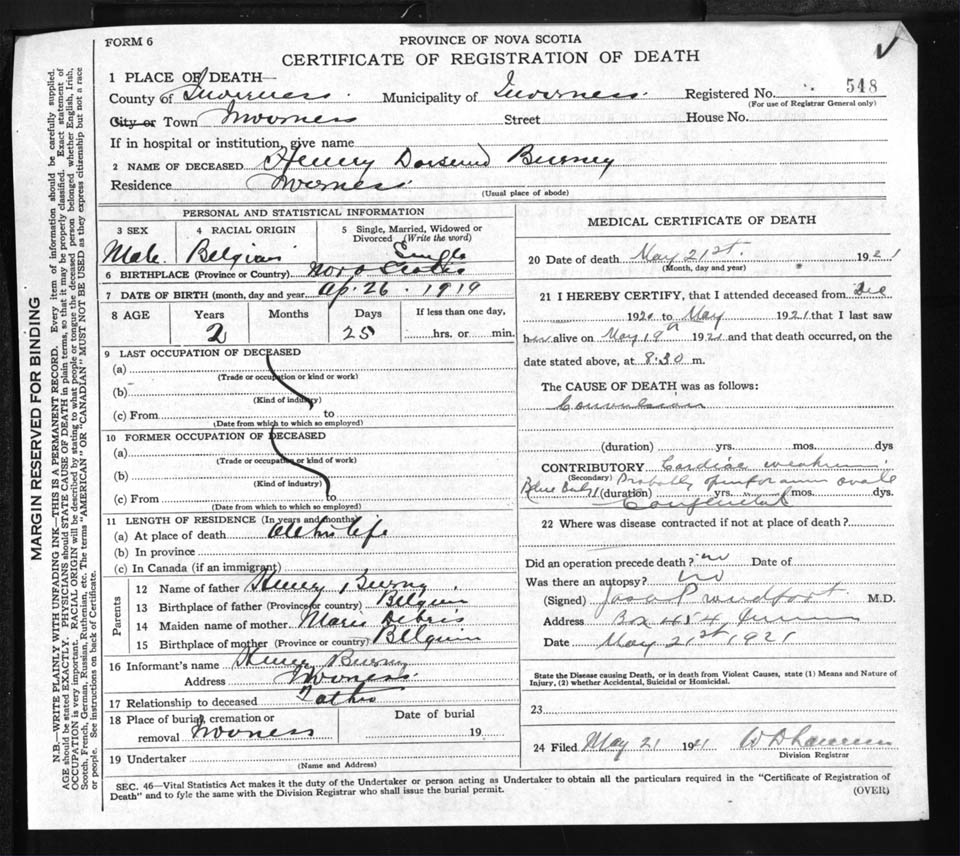 FORM 6
PROVINCE OF NOVA SCOTIA
CERTIFICATE OF REGISTRATION OF DEATH
1 PLACE OF DEATH—
County of Inverness Municipality of Inverness Registered No. 548
(For use of Registrar General only)
City or Town Inverness Street House No.
If in hospital or institution, give name
2 NAME OF DECEASED Henry Burney
Residence Inverness
(Usual place of abode)
PERSONAL AND STATISTICAL INFORMATION
3 SEX 4 RACIAL ORIGIN 5 Single, Married, Widowed or Divorced (Write the word)
Male Belgian Single
6 BIRTHPLACE (Province or Country) Nova Scotia
7 DATE OF BIRTH (month, day and year) Ap. 26. 1919
8 AGE Years Months Days If less than one day,
2 25 hrs. or min.
9 LAST OCCUPATION OF DECEASED
(a)
(Trade or occupation or kind or work)
(b)
(Kind of industry)
(c) From to
(Date from which to which so employed)
10 FORMER OCCUPATION OF DECEASED
(a)
(Trade or occupation or kind of work)
(b)
(Kind of industry)
(c) From to
(Date from which to which so employed)
11 LENGTH OF RESIDENCE (In years and months)
(a) At place of death all his life
(b) In province
(c) In Canada (if an immigrant)
Parents
12 Name of father Henry Burney
13 Birthplace of father (Province or country) Belgium
14 Maiden name of mother Maria Debris
15 Birthplace of mother (Province or country) Belgium
16 Informant's name Henry Burney
Address Inverness
17 Relationship to deceased Father
18 Place of burial, cremation or removal Inverness Date of burial 19
19 Undertaker
(Name and Address)
MEDICAL CERTIFICATE OF DEATH
20 Date of death May 21st. 1921
(Month, day and year)
21 I HEREBY CERTIFY, that I attended deceased from Dec
1920 to May 1921 that I last saw
him alive on May 19 1921 and that death occurred, on the
date stated above, at 8.30 m.
The CAUSE OF DEATH was as follows:
Convulsion
(duration) yrs. mos. dys
CONTRIBUTORY Cardiac weakness
(Secondary) Probably open foramen ovale
Blue Baby (duration) yrs. mos. dys.
Congenital
22 Where was disease contracted if not at place of death?
Did an operation precede death? no Date of
Was there an autopsy? no
(Signed) M.D.
Address Box 454
Date May 21st 1921
State the Disease causing Death, or in death from Violent Causes, state (1) Means and Nature of
Injury, (2) whether Accidental, Suicidal or Homicidal.
23
24 Filed May 21 1921
Division Registrar
SEC. 46—Vital Statistics Act makes it the duty of the Undertaker or person acting as Undertaker to obtain all the particulars required in the "Certificate of Registration of
Death" and to fyle the same with the Division Registrar who shall issue the burial permit.
(OVER)
MARGIN RESERVED FOR BINDING
N.B.—WRITE PLAINLY WITH UNFADING INK—THIS IS A PERMANENT RECORD. Every item of information should be carefully supplied.
AGE should be stated EXACTLY. PHYSICIANS should STATE CAUSE OF DEATH in plain terms, so that it may be properly classified. Exact statement of
OCCUPATION is very important. RACIAL ORIGIN will be described by stating to what people or tongue the deceased person belonged whether English, Irish,
Scotch, French, German, Russian, Ruthenian, etc. The terms "AMERICAN" OR "CANADIAN" MUST NOT BE USED as they express citizenship but not a race
or people. See instructions on back of Certificate.